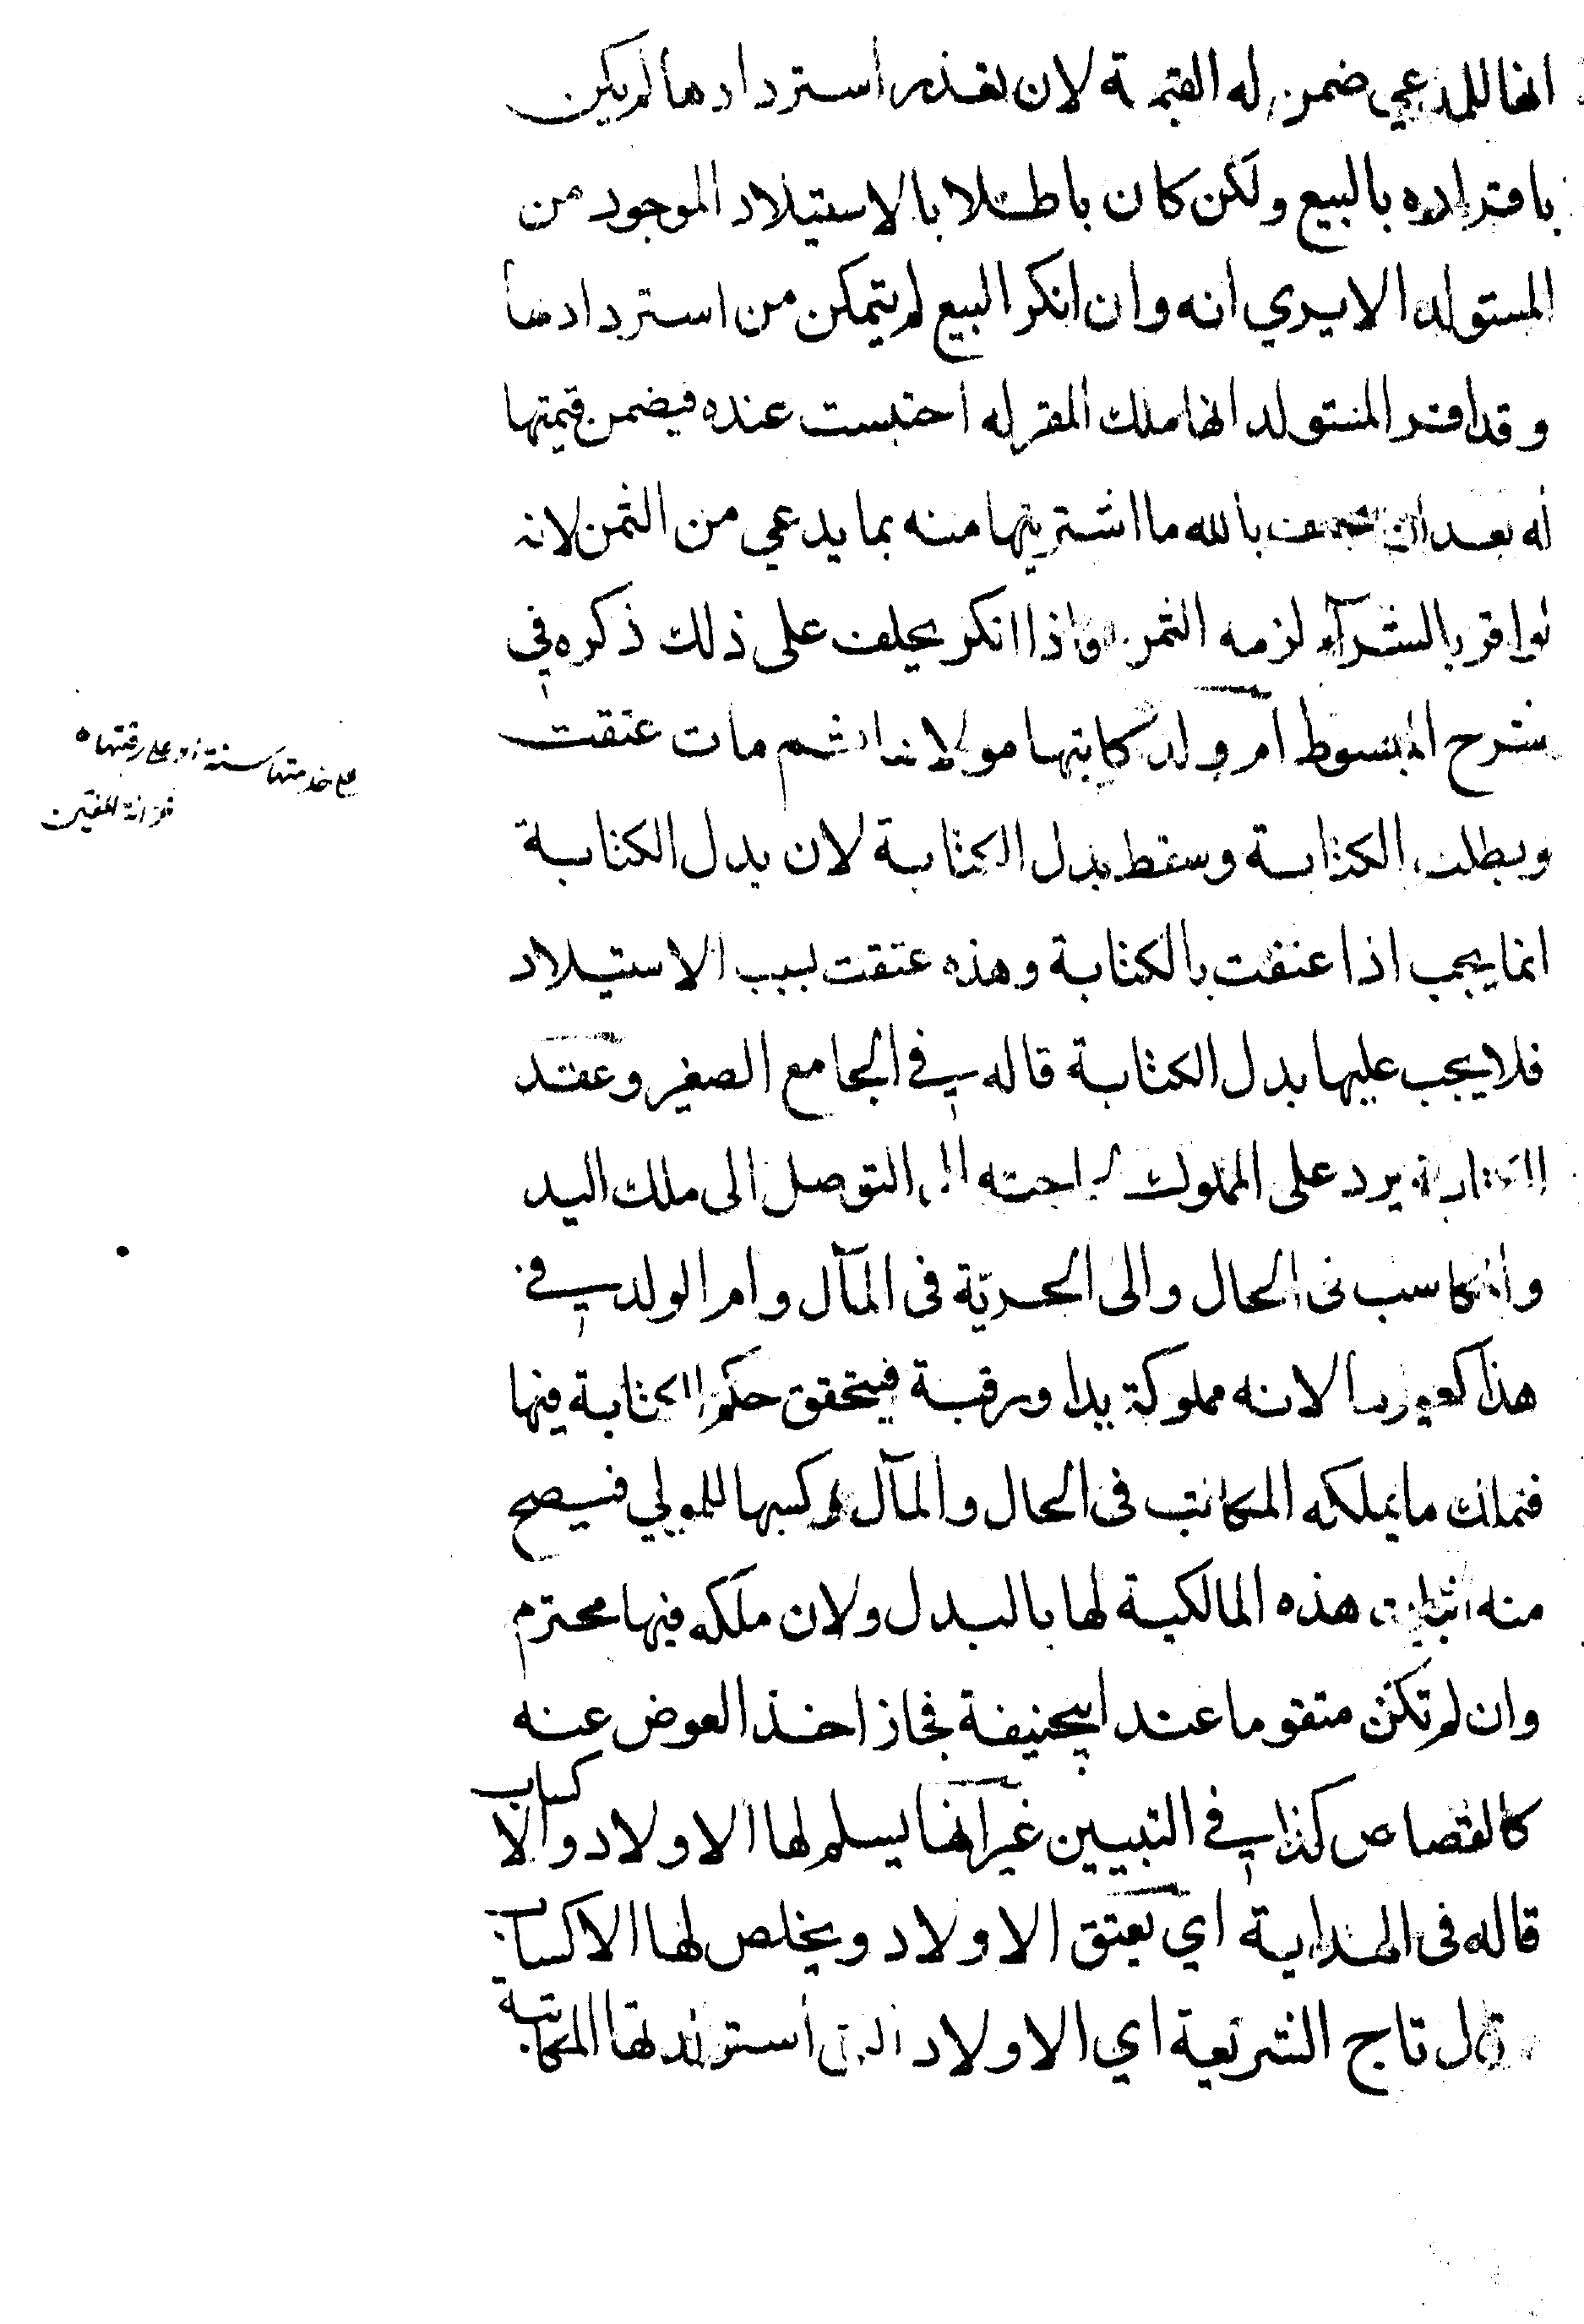 انها للمدعي ضمن له القيمة لان تعذر استردادها لم يكن
باقراره بالبيع ولكن كان باطلا بالاستيلاد الموجود من
المستولد الا يري انه وان انكر البيع لم يتمكن من استردادها
وقد اقر المستولد انها ملك المقر له احتبست عنده فيضمن قيمتها
له بعد ان يحلف بالله ما اشتريتها منه بما يدعي من الثمن لانه
لو اقر بالشرآء لزمه الثمن واذا انكر يحلف على ذلك ذكره في
شرح المبسوط ام ولد كاتبها مولاها ثم مات عتقت
على خدمتها سنة او على رقبتها
خزانة المفتين
وبطلت الكتابة وسقط بدل الكتابة لان بدل الكتابة
انما يجب اذا عتقت بالكتابة وهذه عتقت بسبب الاستيلاد
فلا يجب عليها بدل الكتابة قاله في الجامع الصغير وعقد
الكتابة يرد على المملوك لحاجته الى التوصل الى ملك اليد
والمكاسب فى الحال والى الحريّة فى المآل وام الولد في
هذا كغيرها لانه مملوكة يدا ورقبة فيتحقق حكم الكتابة فيها
فتملك ما يملكه المكاتب فى الحال والمآل وكسبها للمولي فيصح
منه اثبات هذه المالكية لها بالبدل ولان ملكه فيها محترم
وان لم تكن متقوما عند ابيحنيفة فجاز اخذ العوض عنه
كالقصاص كذا في التبيين غير انها يسلم لها الاولاد والاكساب
قاله فى الهداية اي يعتق الاولاد ويخلص لها الاكساب
قال تاج الشريعة اي الاولاد التى استولدتها المكاتبة